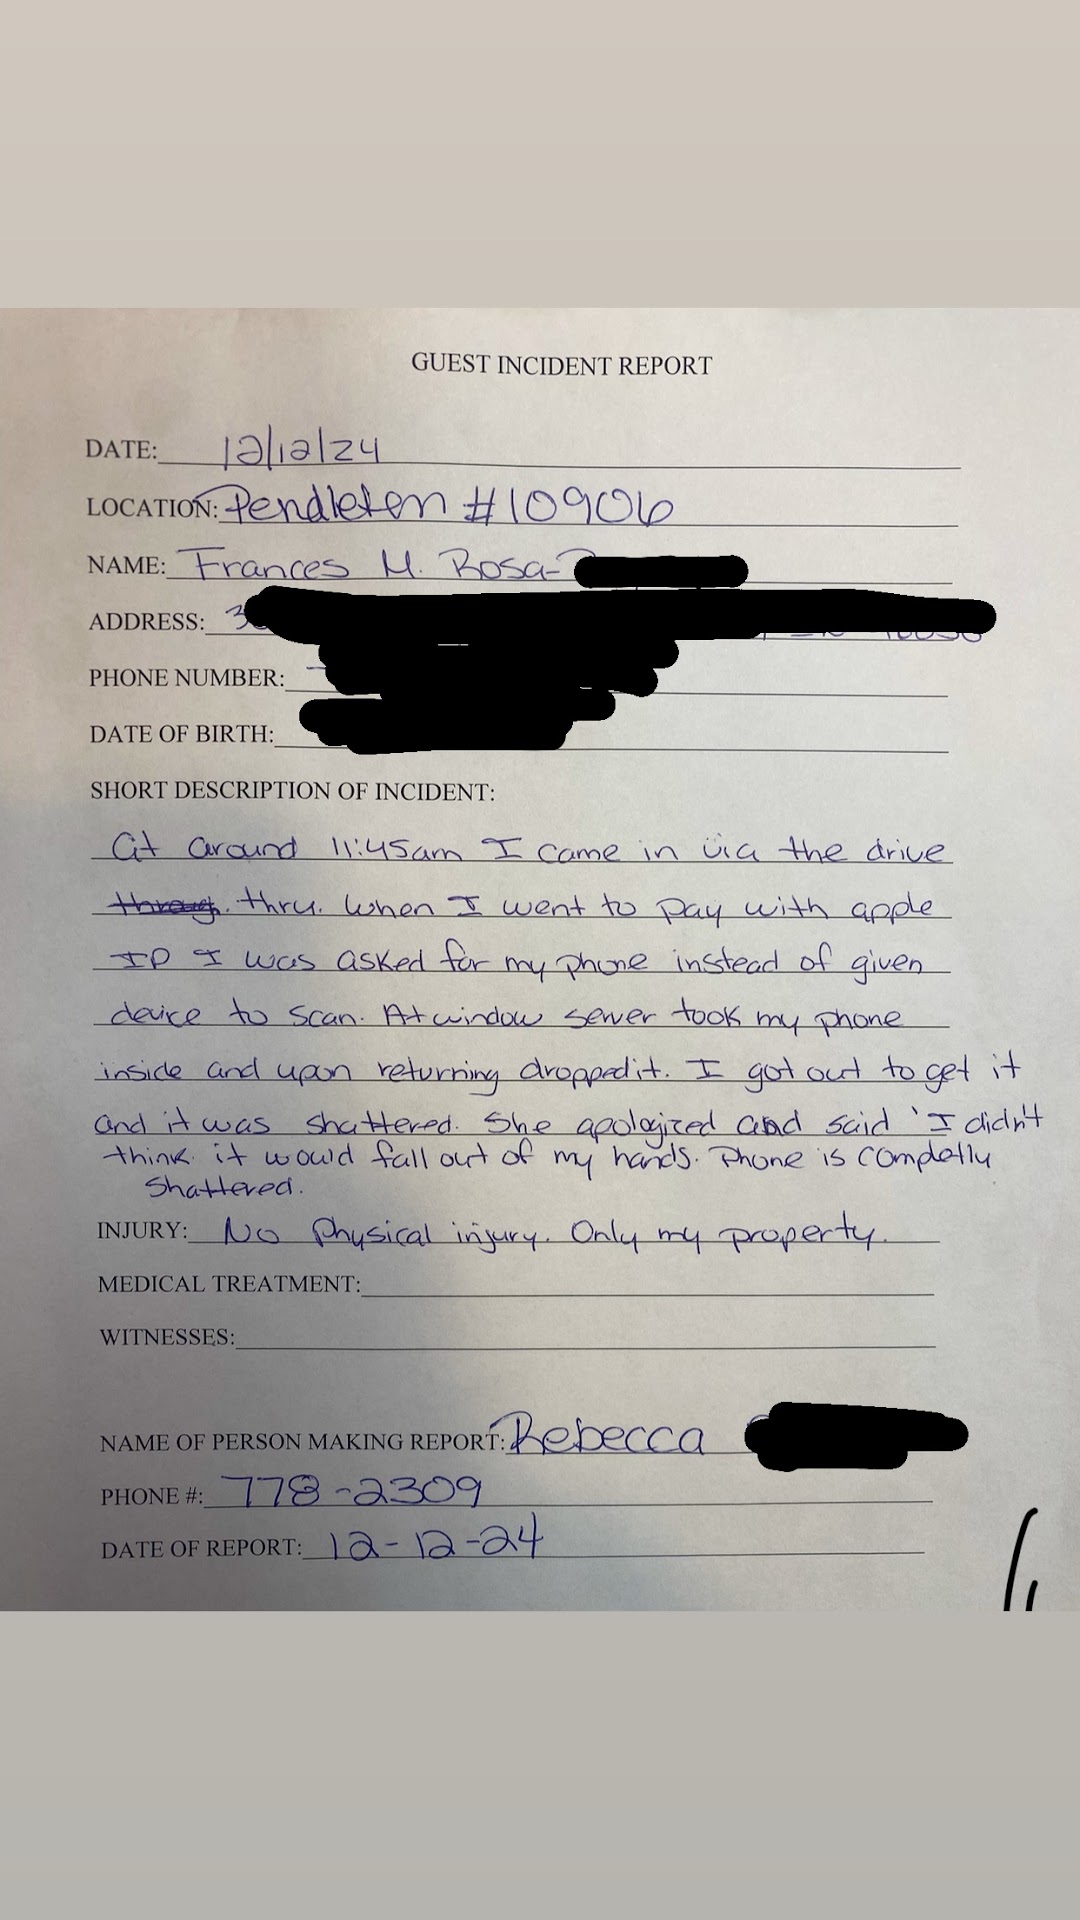 GUEST INCIDENT REPORT
DATE: 12/12/24
LOCATION: Pendleton #10906
NAME: Frances M. Rosa-
ADDRESS: 3
PHONE NUMBER:
DATE OF BIRTH:
SHORT DESCRIPTION OF INCIDENT:
At around 11:45am I came in via the drive
through. thru. When I went to pay with apple
ID I was asked for my phone instead of given
device to scan. At window server took my phone
inside and upon returning dropped it. I got out to get it
and it was shattered. She apologized and said 'I didn't
think it would fall out of my hands. Phone is completly
Shattered.
INJURY: No Physical injury. Only my property.
MEDICAL TREATMENT:
WITNESSES:
NAME OF PERSON MAKING REPORT: Rebecca
PHONE #: 778-2309
DATE OF REPORT: 12-12-24